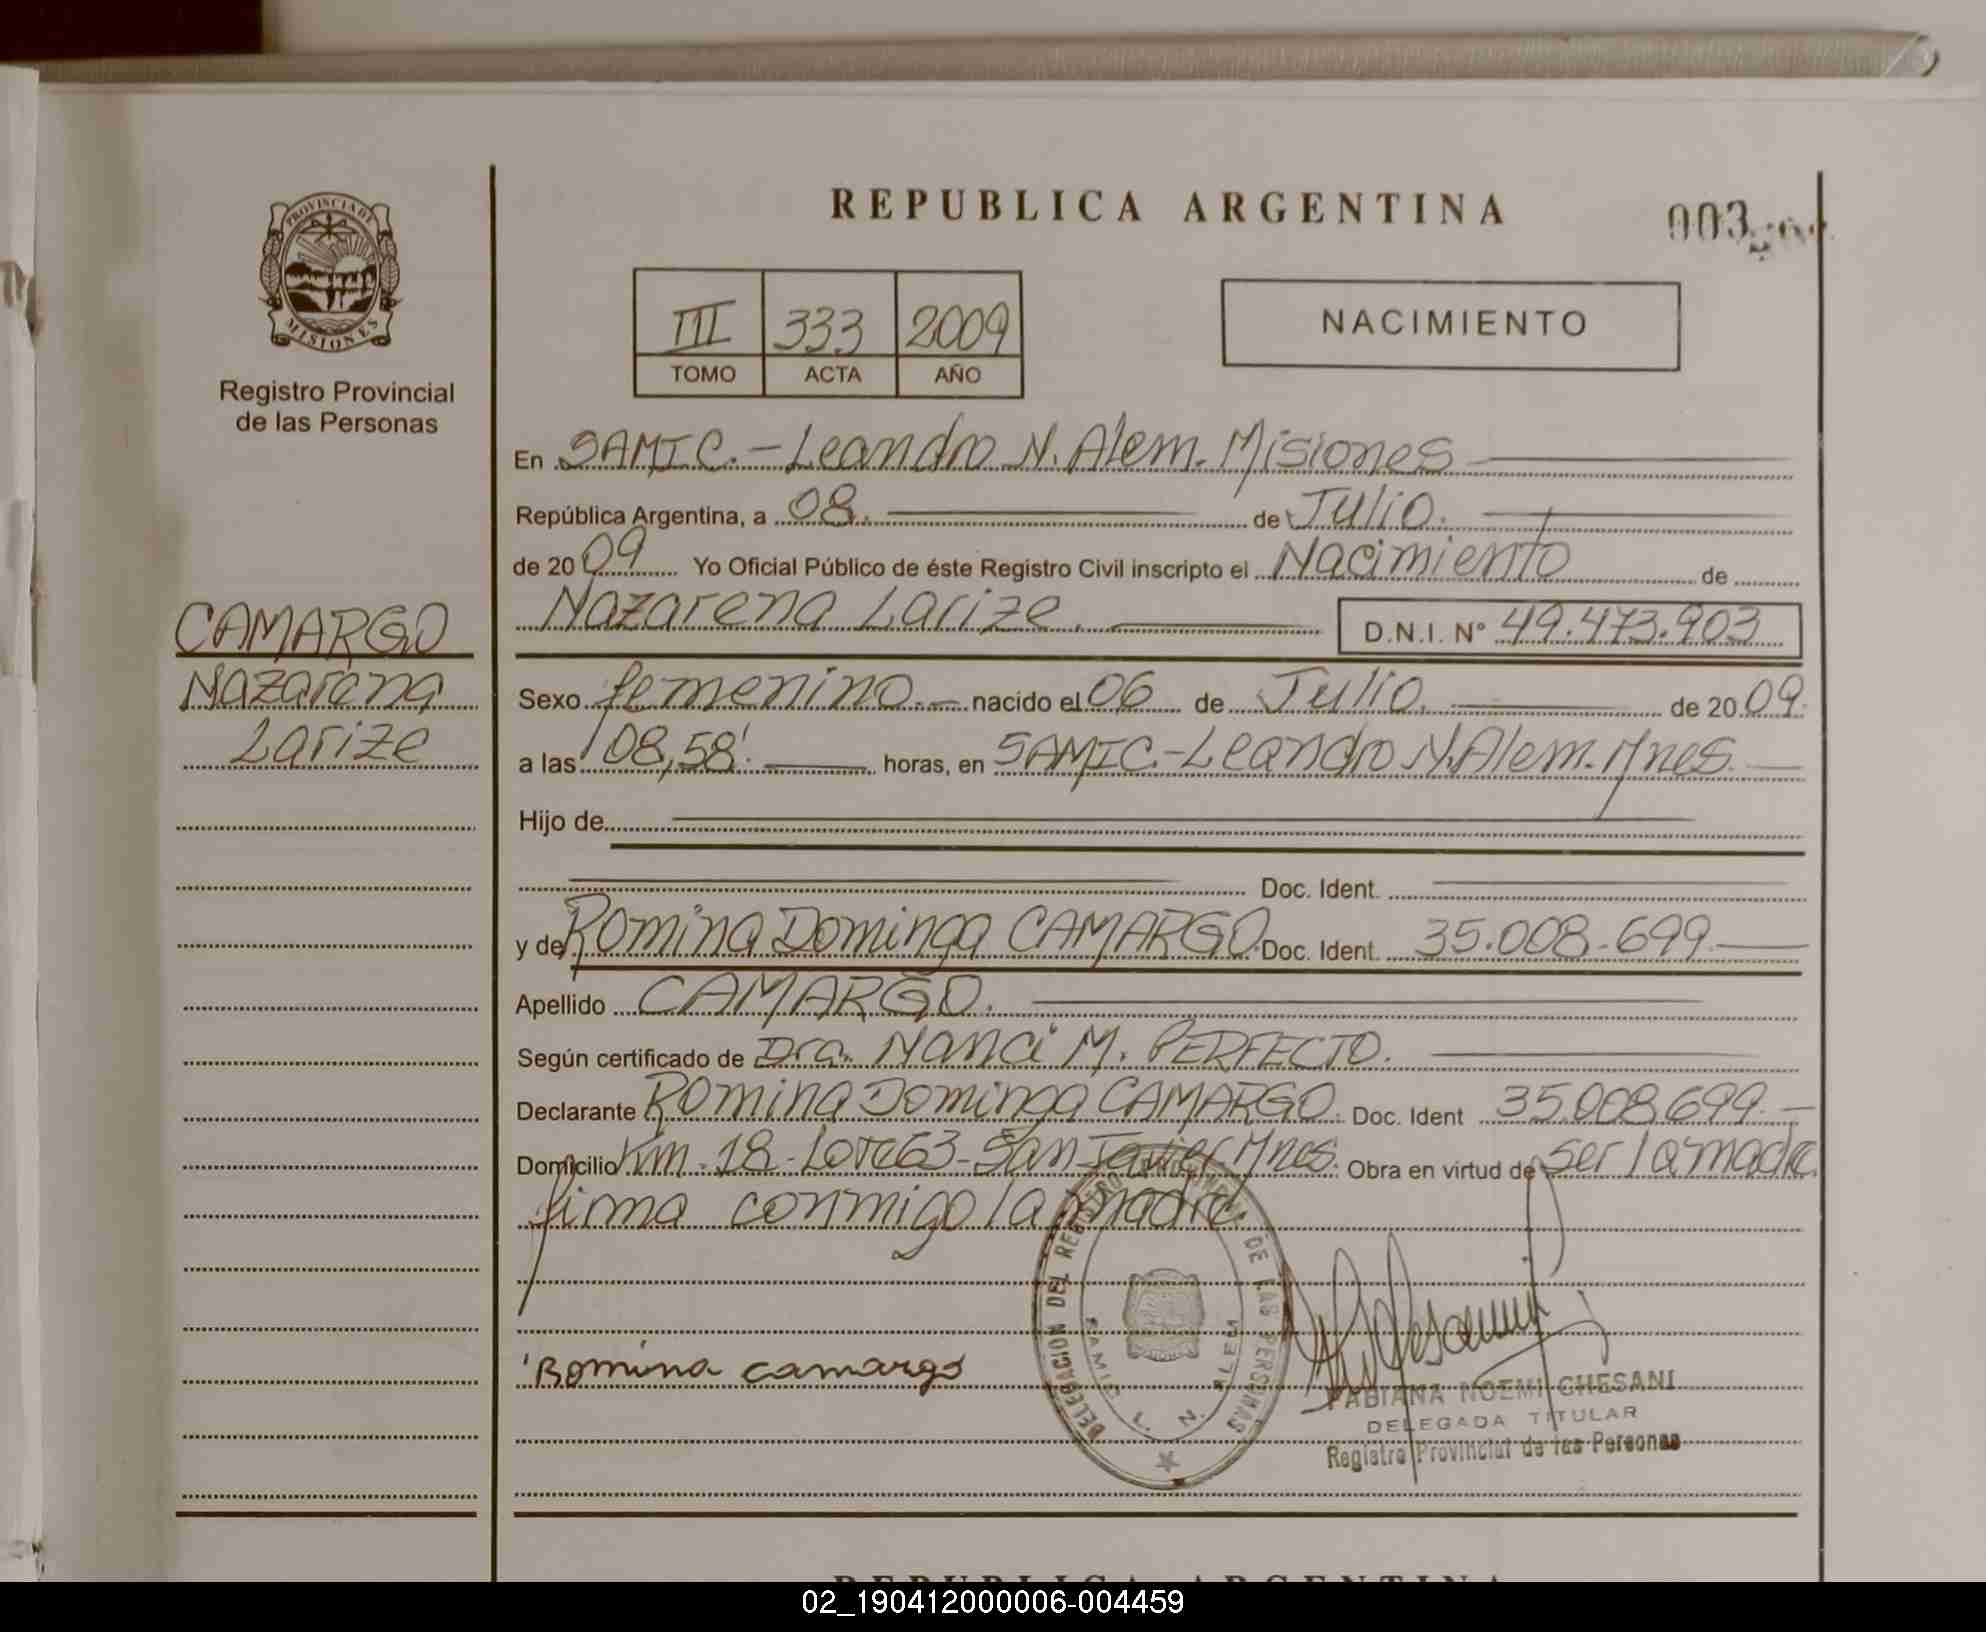 REPUBLICA ARGENTINA
003
PROVINCIA DE
MISIONES
Registro Provincial
de las Personas
III 333 2009
TOMO ACTA AÑO
NACIMIENTO
En SAMIC.-Leandro N. Alem. Misiones
República Argentina, a 08. de Julio.
de 2009 Yo Oficial Público de éste Registro Civil inscripto el Nacimiento de
Nazarena Larize. D.N.I. Nº 49.473.903
CAMARGO
Nazarena
Larize
Sexo femenino.- nacido el 06 de Julio. de 2009.
a las 08,58'. horas, en SAMIC.-Leandro N. Alem. Mnes.
Hijo de
Doc. Ident.
y de Romina Dominga CAMARGO. Doc. Ident. 35.008.699.
Apellido CAMARGO.
Según certificado de Dra. Nanci M. PERFECTO.
Declarante Romina Dominga CAMARGO. Doc. Ident 35.008.699.-
Domicilio Km. 18-Lote 63-San Javier Mnes. Obra en virtud de ser la madre.
firma conmigo la madre.
Romina camargo
DELEGACION DEL REGISTRO PROVINCIAL DE LAS PERSONAS
SAMIC L. N. ALEM
FABIANA NOEMI CHESANI
DELEGADA TITULAR
Registro Provincial de las Personas
REPUBLICA ARGENTINA
02_190412000006-004459